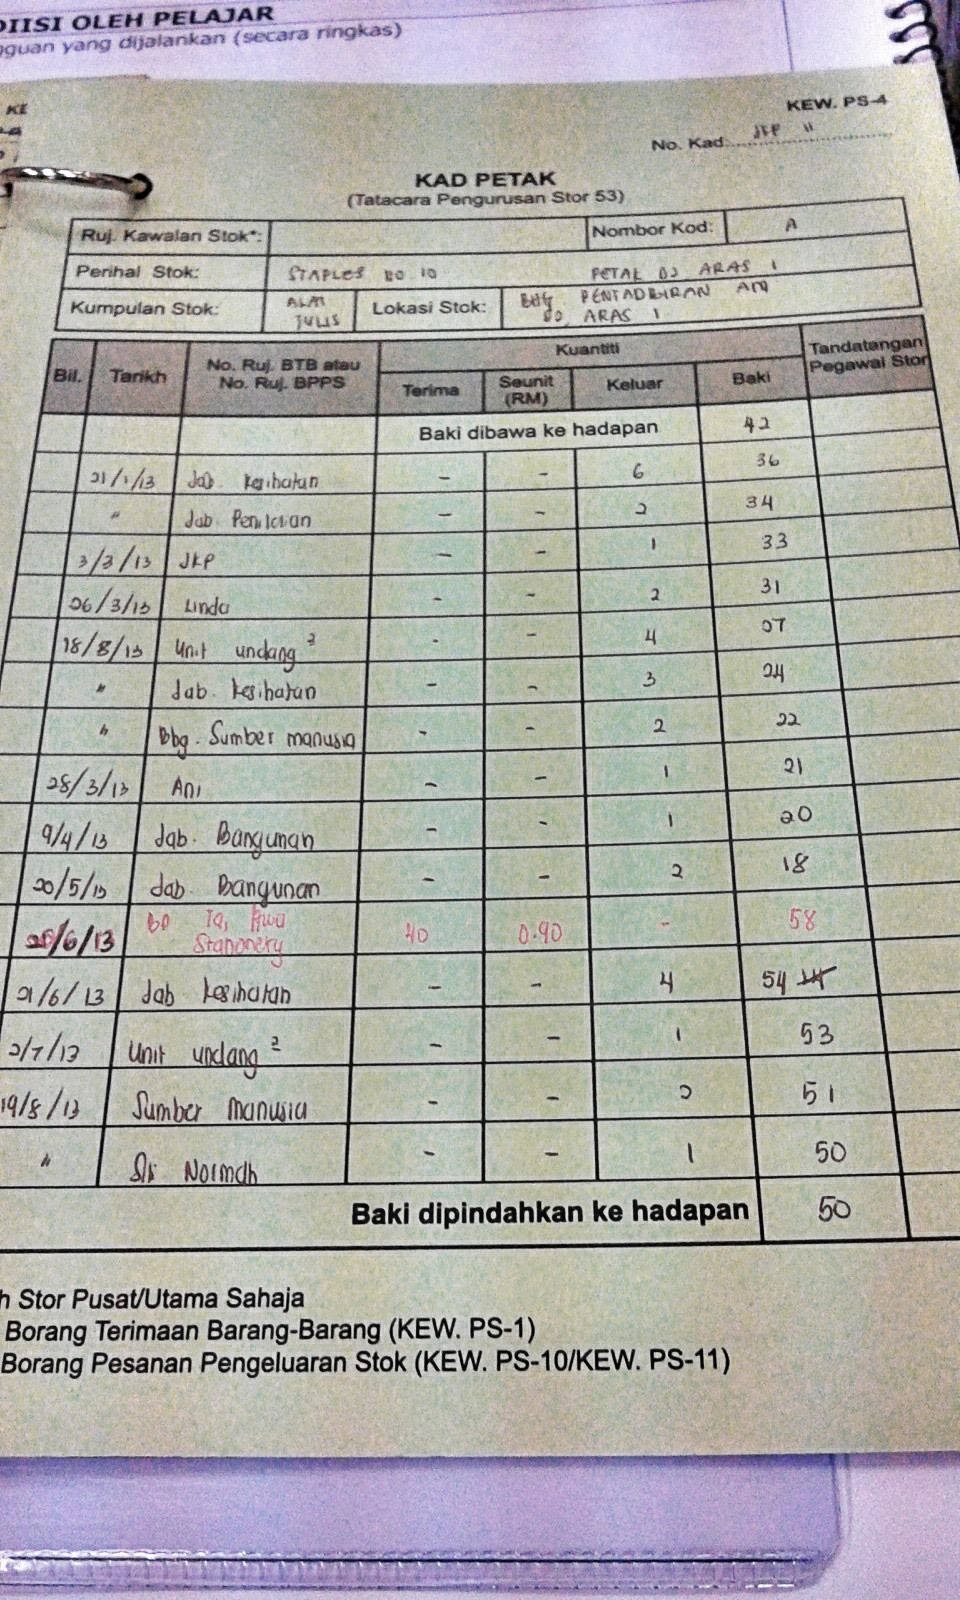 DIISI OLEH PELAJAR
gguan yang dijalankan (secara ringkas)
KE
KEW. PS-4
No. Kad:
KAD PETAK
(Tatacara Pengurusan Stor 53)
Ruj. Kawalan Stok*: Nombor Kod: A
Perihal Stok: STAPLES NO 10 ARAS 1
Kumpulan Stok: ALAT TULIS Lokasi Stok: BHG PENTADBIRAN ARAS 1
Bil. Tarikh No. Ruj. BTB atau No. Ruj. BPPS Kuantiti Tandatangan Pegawai Stor
Terima Seunit (RM) Keluar Baki
Baki dibawa ke hadapan 42
21/1/13 Jab. Kesihatan - - 6 36
" Jab. Penilaian - - 2 34
3/3/13 JKP - - 1 33
26/3/13 Linda - - 2 31
18/8/13 Unit undang 2 - - 4 27
" Jab. Kesihatan - - 3 24
" Bhg. Sumber manusia - - 2 22
28/3/13 Ani - - 1 21
9/4/13 Jab. Bangunan - - 1 20
20/5/13 Jab. Bangunan - - 2 18
/6/13 Stationery 40 0.90 - 58
21/6/13 Jab Kesihatan - - 4 54
2/7/13 Unit undang 2 - - 1 53
19/8/13 Sumber Manusia - - 2 51
" Normah - - 1 50
Baki dipindahkan ke hadapan 50
h Stor Pusat/Utama Sahaja
Borang Terimaan Barang-Barang (KEW. PS-1)
Borang Pesanan Pengeluaran Stok (KEW. PS-10/KEW. PS-11)